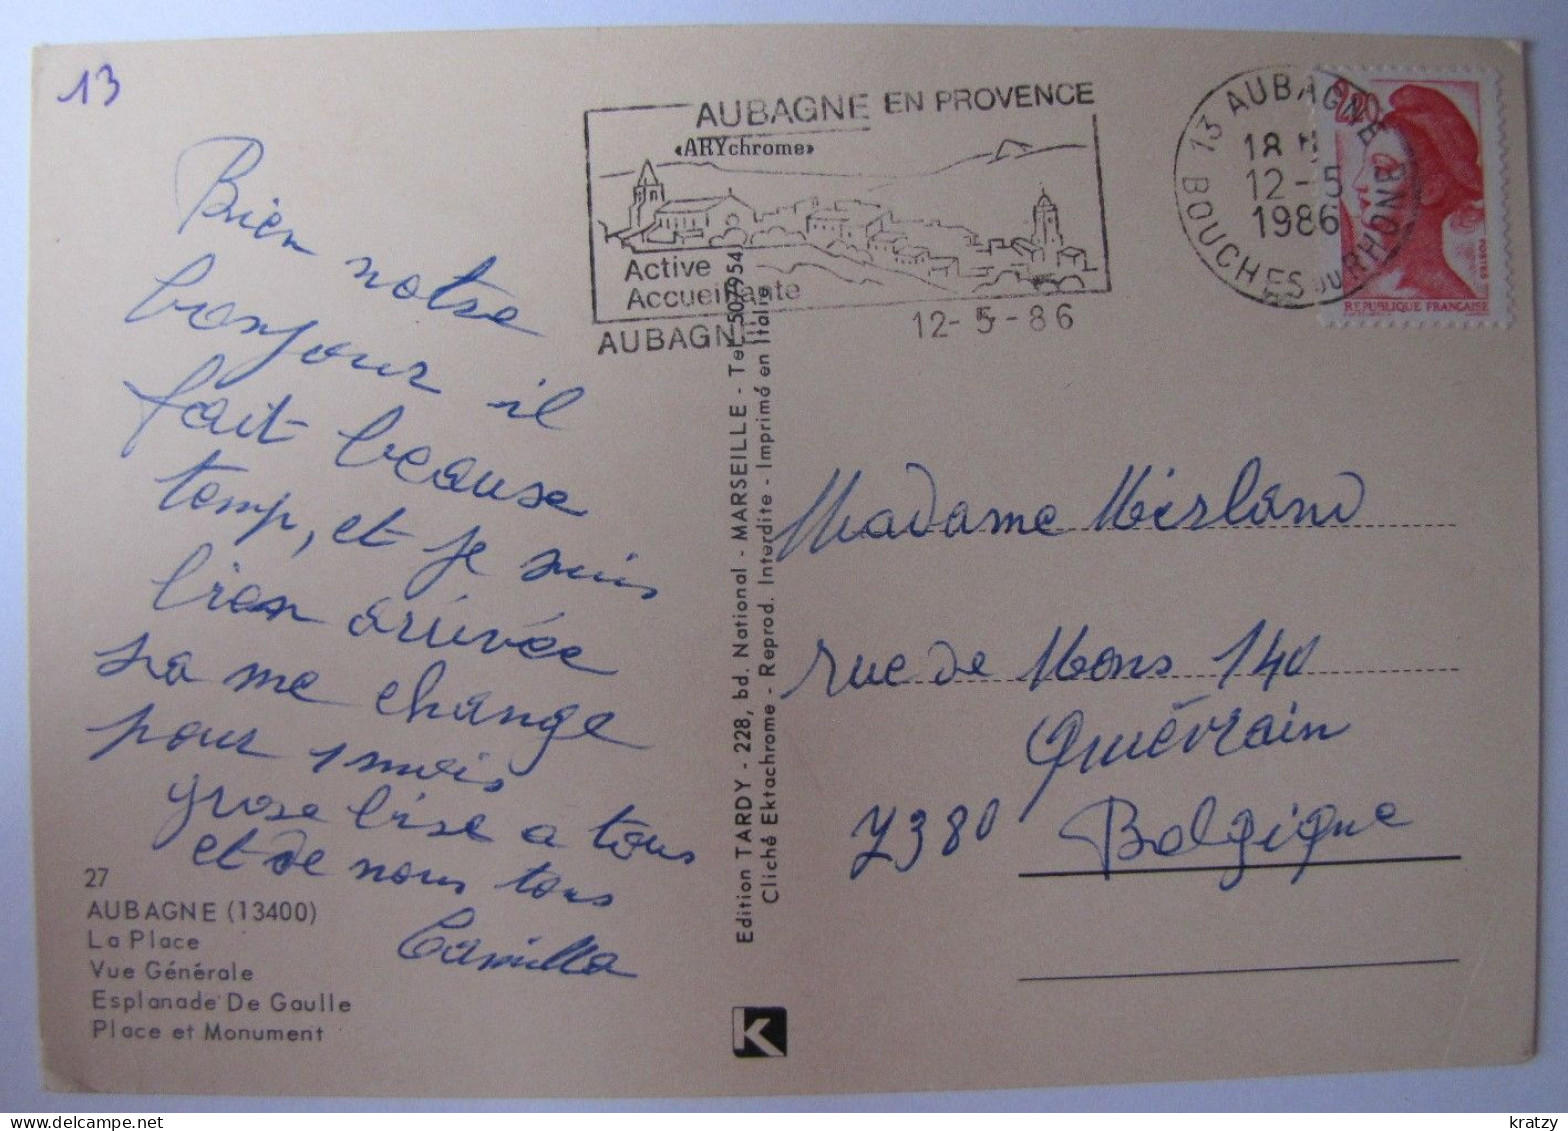 13
AUBAGNE EN PROVENCE
«ARYchrome»
Active
Accueillante
AUBAGNE
12-5-86
13 AUBAGNE
18 H
12-5
1986
BOUCHES DU RHONE
2,20
POSTES
REPUBLIQUE FRANÇAISE
Bien notre
bonjour il
fait beause
temp, et je suis
bien arrivée
sa me change
pour 1 mois
grose bise a tous
et de nous tous
Camilla
27
AUBAGNE (13400)
La Place
Vue Générale
Esplanade De Gaulle
Place et Monument
Edition TARDY - 228, bd. National - MARSEILLE - Tel. 50
Cliché Ektachrome - Reprod. Interdite - Imprimé en Italie
K
Madame Mirland
rue de Mons 140
Quiévrain
7380 Belgique
kratzy